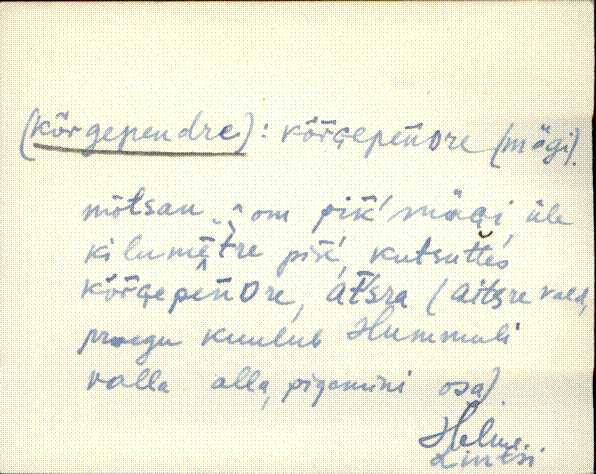 (kõrgepeńdre): kõrgepeńdre (mägi).
mõtsan om piḱ mägi, üle
kilumētre piḱ, kutsuttes
kõrgepeńdre, at́sra (Aitsre vald,
praegu kuulub Hummuli
valla alla, pigemini osa).
Helme
Lintsi